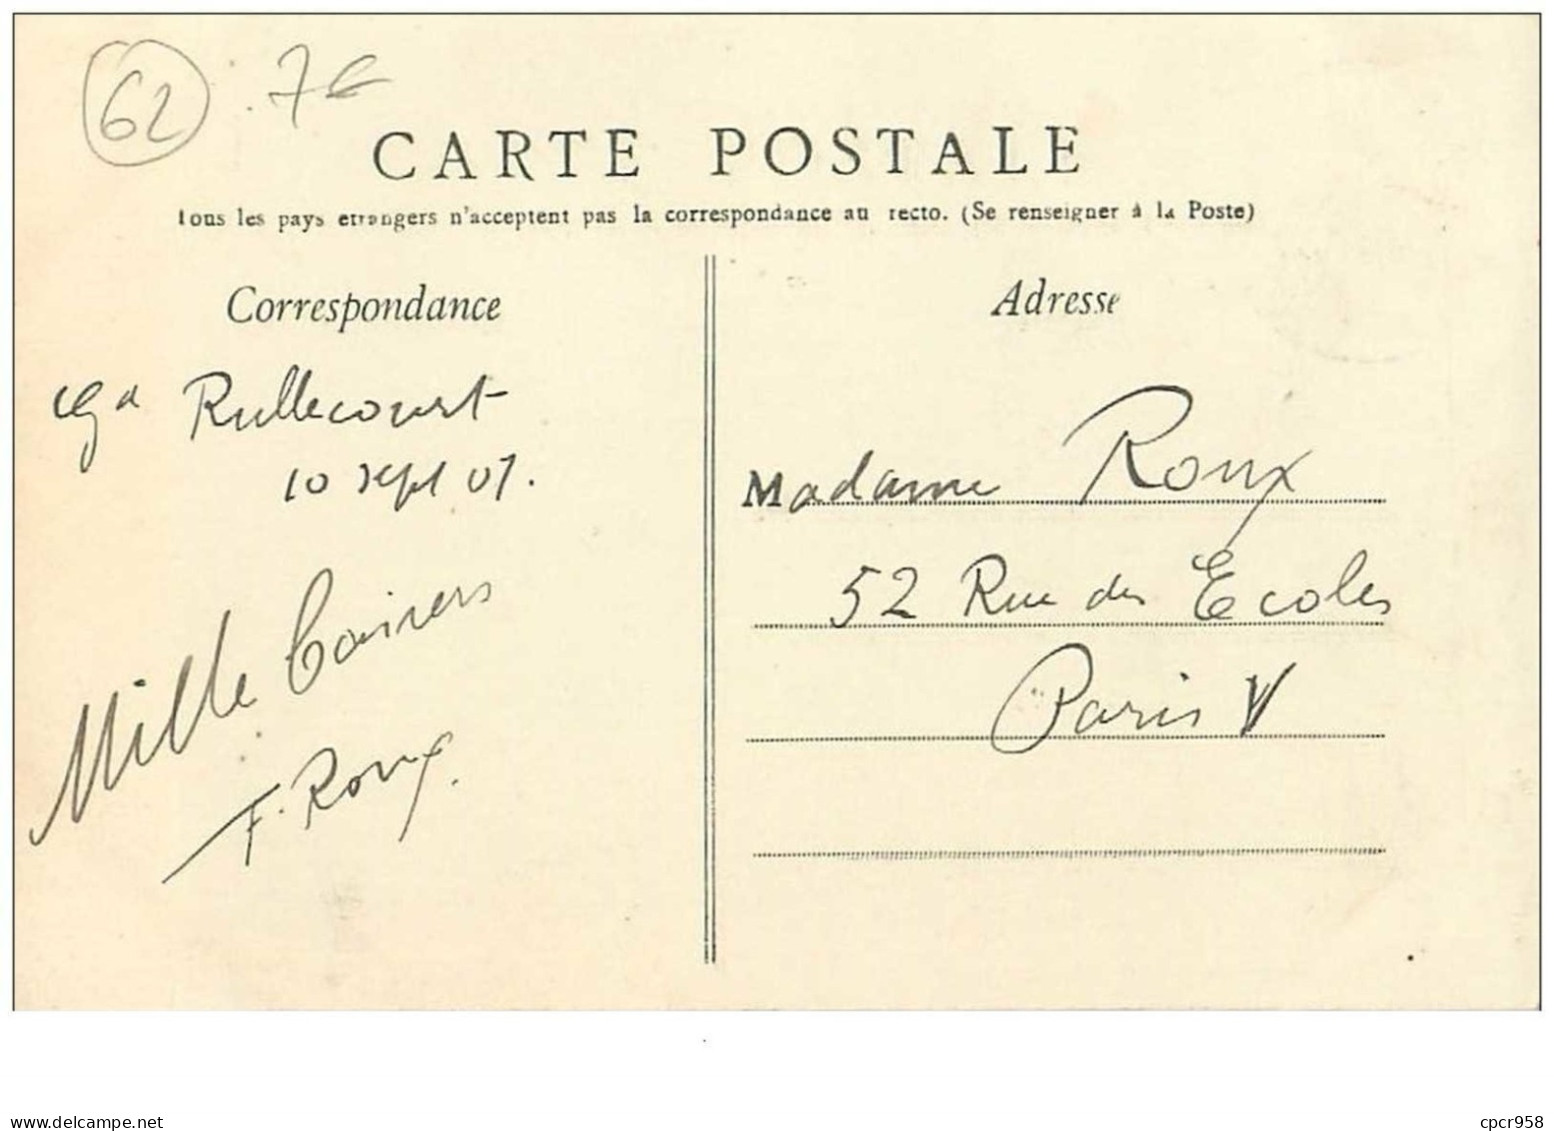 62 7€
CARTE POSTALE
Tous les pays etrangers n'acceptent pas la correspondance au recto. (Se renseigner à la Poste)
Correspondance
Adresse
Rullecourt
10 sept 07.
Mille baisers
F. Roux.
Madame Roux
52 Rue des Ecoles
Paris V
www.delcampe.net
cpcr958